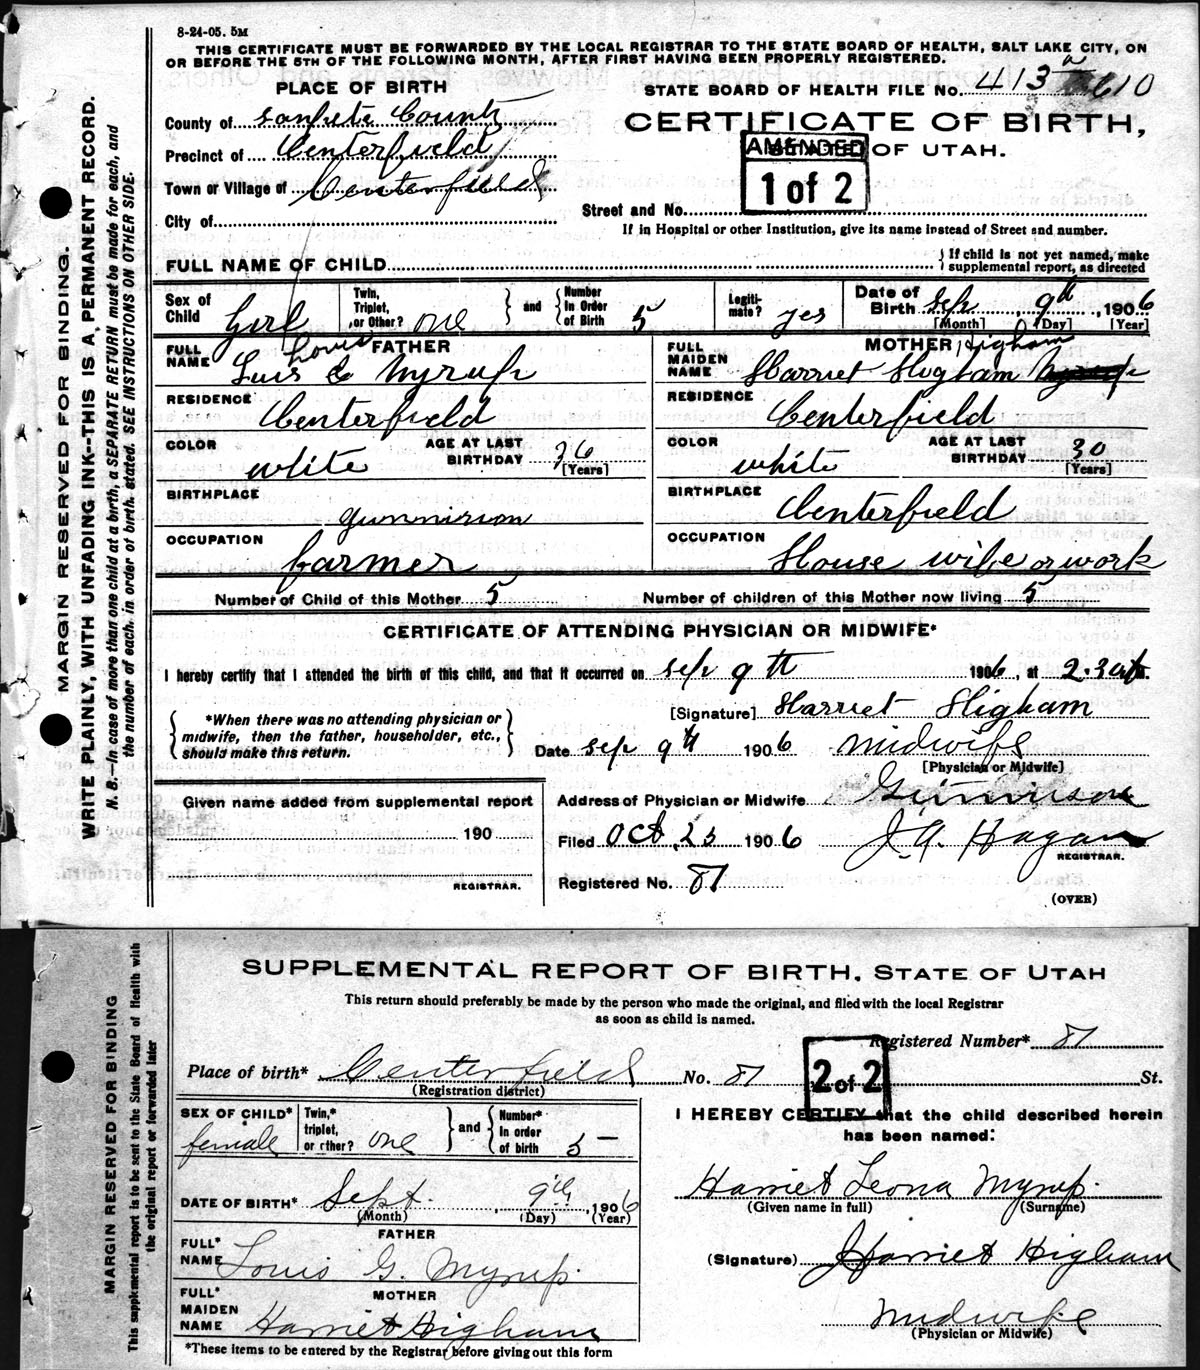 8-24-05. 5M
THIS CERTIFICATE MUST BE FORWARDED BY THE LOCAL REGISTRAR TO THE STATE BOARD OF HEALTH, SALT LAKE CITY, ON
OR BEFORE THE 5TH OF THE FOLLOWING MONTH, AFTER FIRST HAVING BEEN PROPERLY REGISTERED.
PLACE OF BIRTH
STATE BOARD OF HEALTH FILE No. 413 a 610
County of Sanpete County
CERTIFICATE OF BIRTH,
Precinct of Centerfield
AMENDED OF UTAH.
Town or Village of Centerfield
1 of 2
City of
Street and No.
If in Hospital or other Institution, give its name instead of Street and number.
FULL NAME OF CHILD
{ If child is not yet named, make
supplemental report, as directed
Sex of Child Girl
Twin, Triplet, or Other? one } and { Number In Order of Birth 5
Legiti- mate? yes
Date of Birth Sep 9th, 1906
[Month] [Day] [Year]
FATHER
FULL NAME Louis
Luis G Myrup
MOTHER Higham
FULL MAIDEN NAME Harriet Higham
RESIDENCE Centerfield
RESIDENCE Centerfield
COLOR white AGE AT LAST BIRTHDAY 36 [Years]
COLOR white AGE AT LAST BIRTHDAY 30 [Years]
BIRTHPLACE gunnison
BIRTHPLACE Centerfield
OCCUPATION farmer
OCCUPATION House wife or work
Number of Child of this Mother 5 Number of children of this Mother now living 5
CERTIFICATE OF ATTENDING PHYSICIAN OR MIDWIFE*
I hereby certify that I attended the birth of this child, and that it occurred on sep 9th 1906, at 2.30 M.
{ *When there was no attending physician or
midwife, then the father, householder, etc.,
should make this return. }
[Signature] Harriet Higham
Date sep 9th 1906 midwife
[Physician or Midwife]
Given name added from supplemental report
190
REGISTRAR.
Address of Physician or Midwife Gunnison
Filed Oct. 25 1906 J. A. Hagan
REGISTRAR.
Registered No. 87
(OVER)
MARGIN RESERVED FOR BINDING.
WRITE PLAINLY, WITH UNFADING INK--THIS IS A PERMANENT RECORD.
N. B.—In case of more than one child at a birth, a SEPARATE RETURN must be made for each, and
the number of each, in order of birth, stated. SEE INSTRUCTIONS ON OTHER SIDE.
SUPPLEMENTAL REPORT OF BIRTH, STATE OF UTAH
This return should preferably be made by the person who made the original, and filed with the local Registrar
as soon as child is named.
Registered Number* 87
Place of birth* Centerfield No. 87 St.
(Registration district)
2 of 2
SEX OF CHILD* female
Twin,* triplet, or other? one } and { Number* In order of birth 5 –
DATE OF BIRTH* Sept. 9th, 1906
(Month) (Day) (Year)
FATHER
FULL* NAME Louis G. Myrup.
MOTHER
FULL* MAIDEN NAME Harriet Higham
*These items to be entered by the Registrar before giving out this form
I HEREBY CERTIFY that the child described herein
has been named:
Harriet Leona Myrup.
(Given name in full) (Surname)
(Signature) Harriet Higham
Midwife
(Physician or Midwife)
MARGIN RESERVED FOR BINDING
This supplemental report is to be sent to the State Board of Health with
the original report or forwarded later